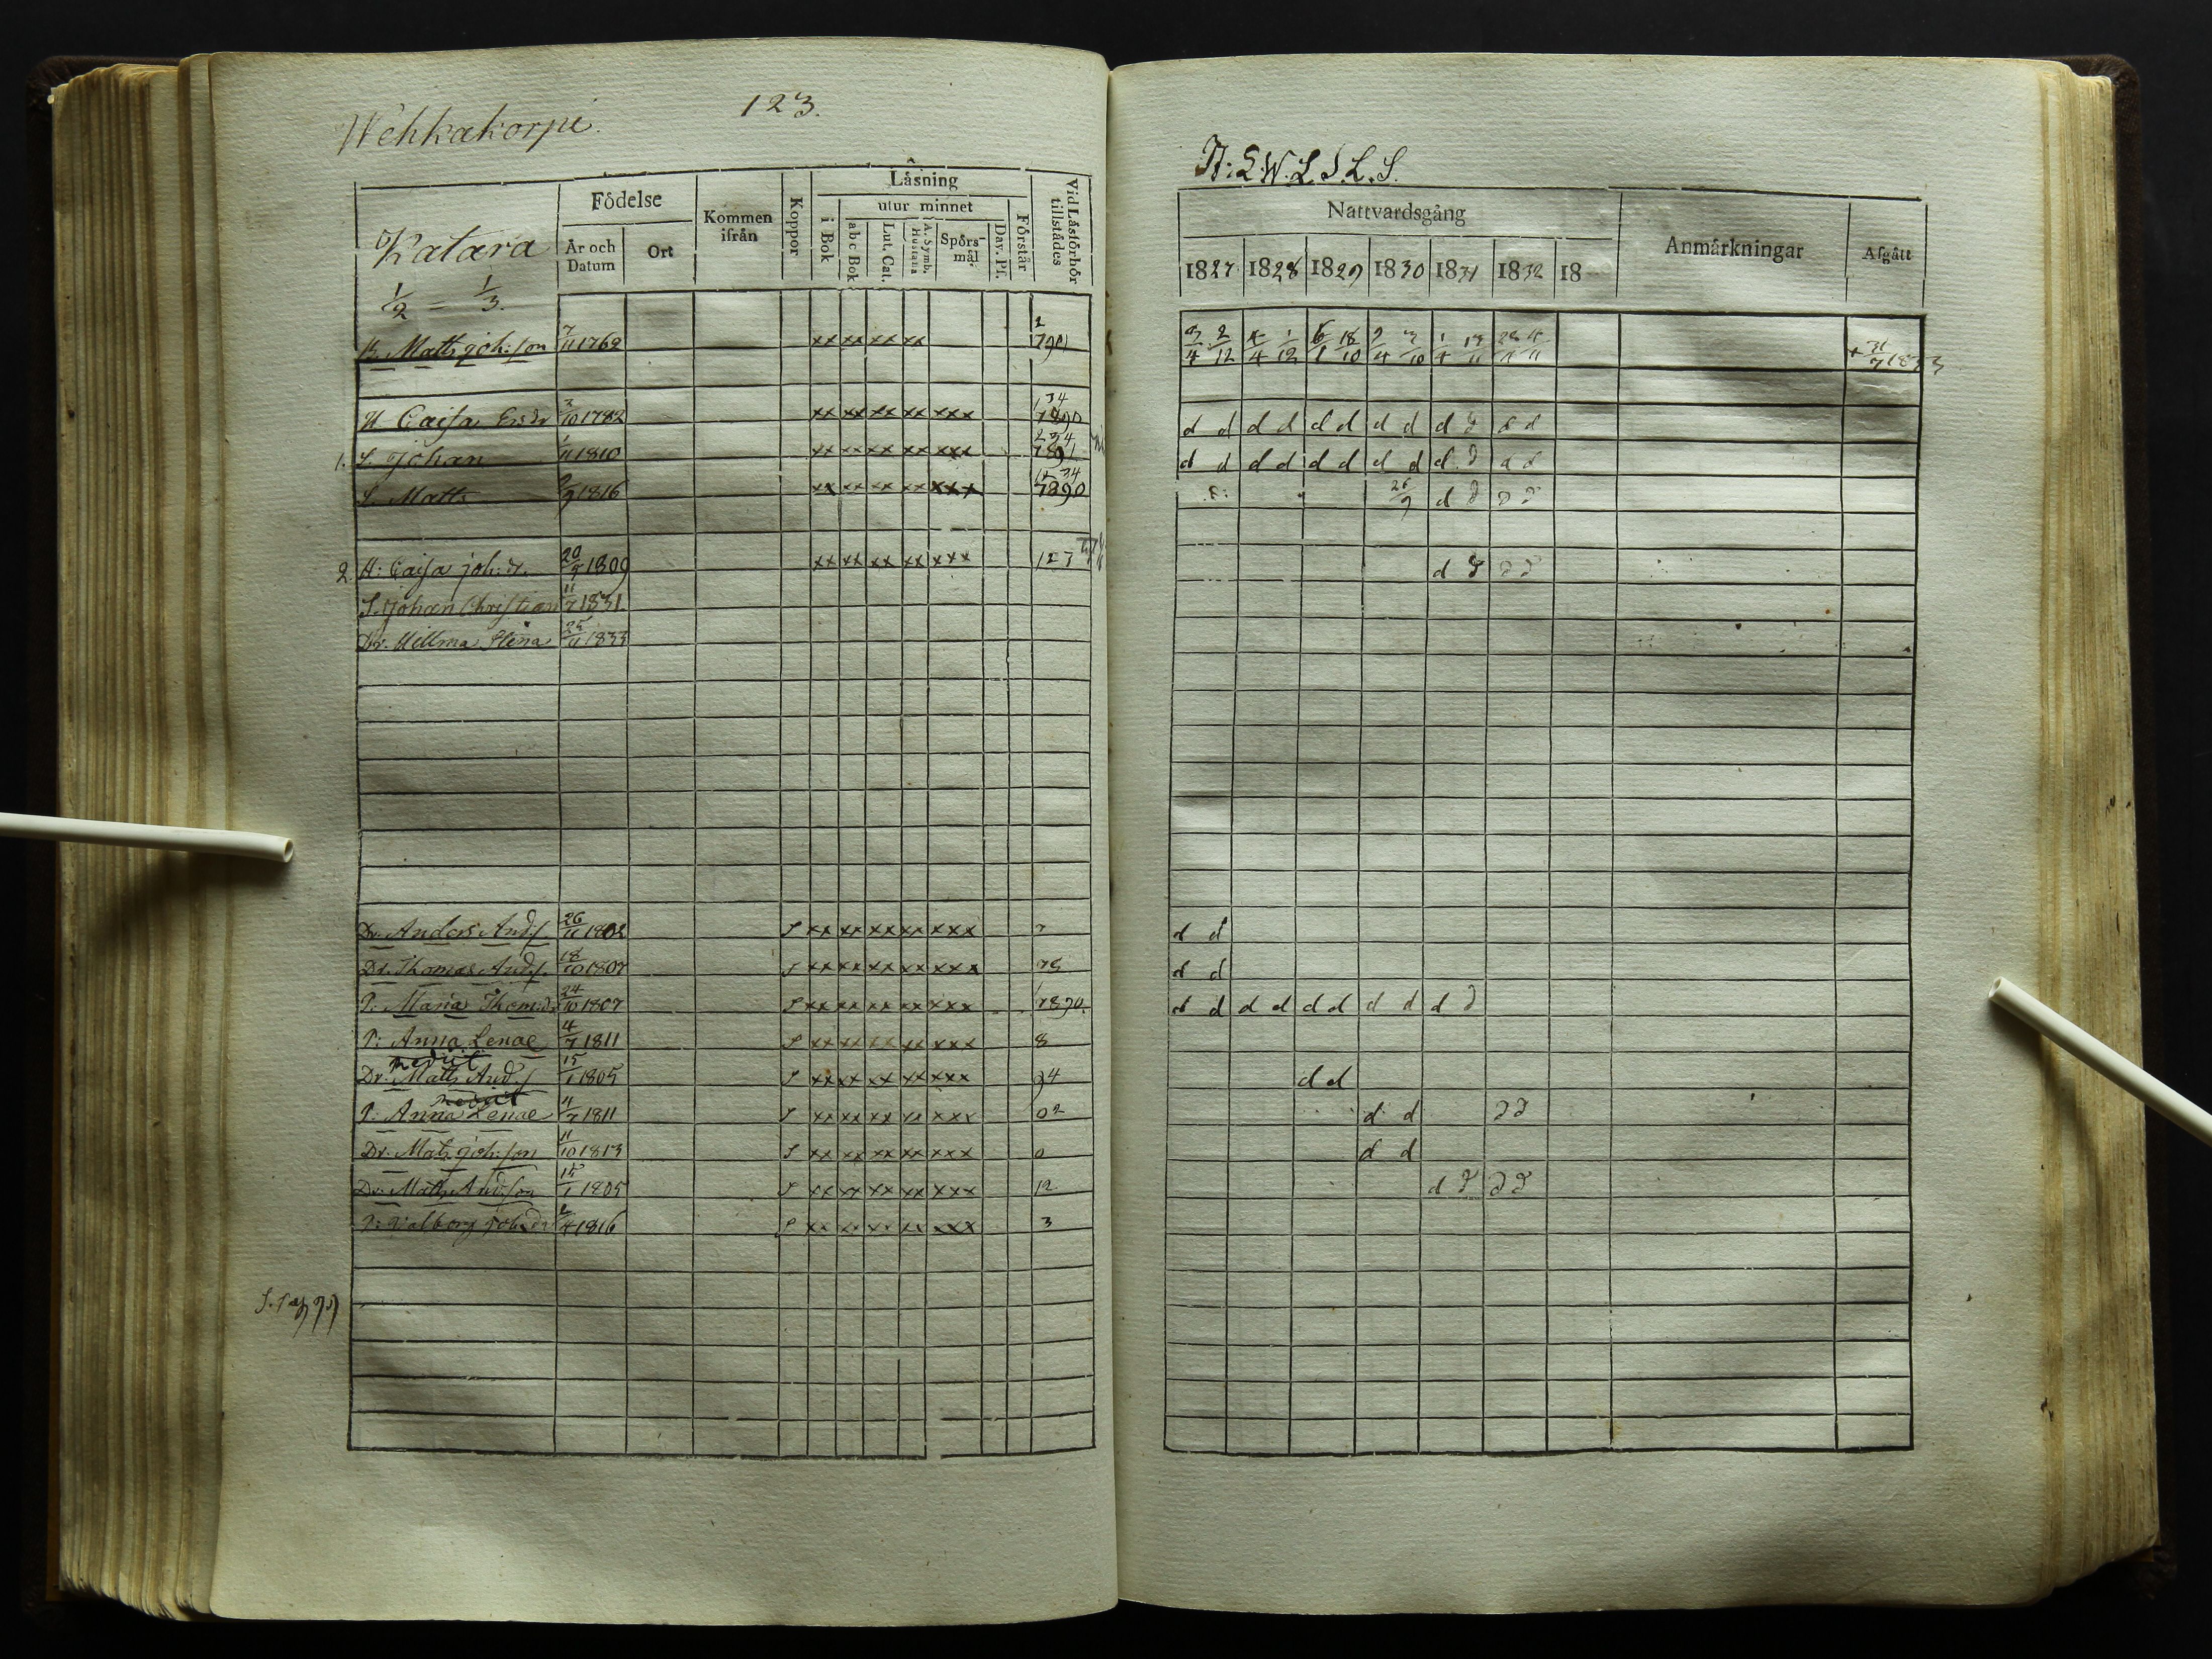 Wehkakorpi.
123.
Katara
1/2 = 1/3.
Födelse
År och Datum
Ort
Kommen ifrån
Koppor
Läsning
i Bok
utur minnet
abc Bok
Lut. Cat.
A. Symb. Hustafla
Spörsmål
Dav. Ps.
Förstår
Vid Läsförhör tillstädes
B. Matts joh:son 7/11 1762 xx xx xx xx
H Caisa Ersdr 2/10 1782 xx xx xx xx xxx
1. S. johan 1/11 1810 xx xx xx xx xxx
S. Matts 2/9 1816 xx xx xx xx xxx 7890
2. H: Caisa joh: d. 20/9 1809 xx xx xx xx xxx 123
S. Johan Christian 11/7 1831.
Dr. Willma Stina 25/11 1833
Dr. Anders And:s 26/11 1802 S xx xx xx xx xxx 7
Dr. Thomas And:s. 18/10 1807 S xx xx xx xx xxx 78
P: Maria Thom:dr 24/10 1807 S xx xx xx xx xxx 7890.
P: Anna Lenae 4/7 1811 S xx xx xx xx xxx 8
nedut
Dr. Matts And:s 15/1 1805 S xx xx xx xx xxx 94
nedut
P: Anna Lenae 4/7 1811 S xx xx xx xx xxx 02
Dr. Mats joh:son 11/10 1813 S xx xx xx xx xxx 0
Dr. Matts And:son 15/1 1805 S xx xx xx xx xxx 12
P: Valborg joh:dr 2/4 1816 S xx xx xx xx xxx 3
H: E. W. L. S. L. S.
Nattvardsgång
1827 1828 1829 1830 1831 1832 18
Anmärkningar
Afgått
2/12 4/4 1/12 18/10
+ 31/7 1833
d d d d d d d d d d d d
d d d d d d d d d d d d
26/9 d d d d
d d d d
d d
d d
d d d d d d d d d d
d d
d d d d
d d
d d d d